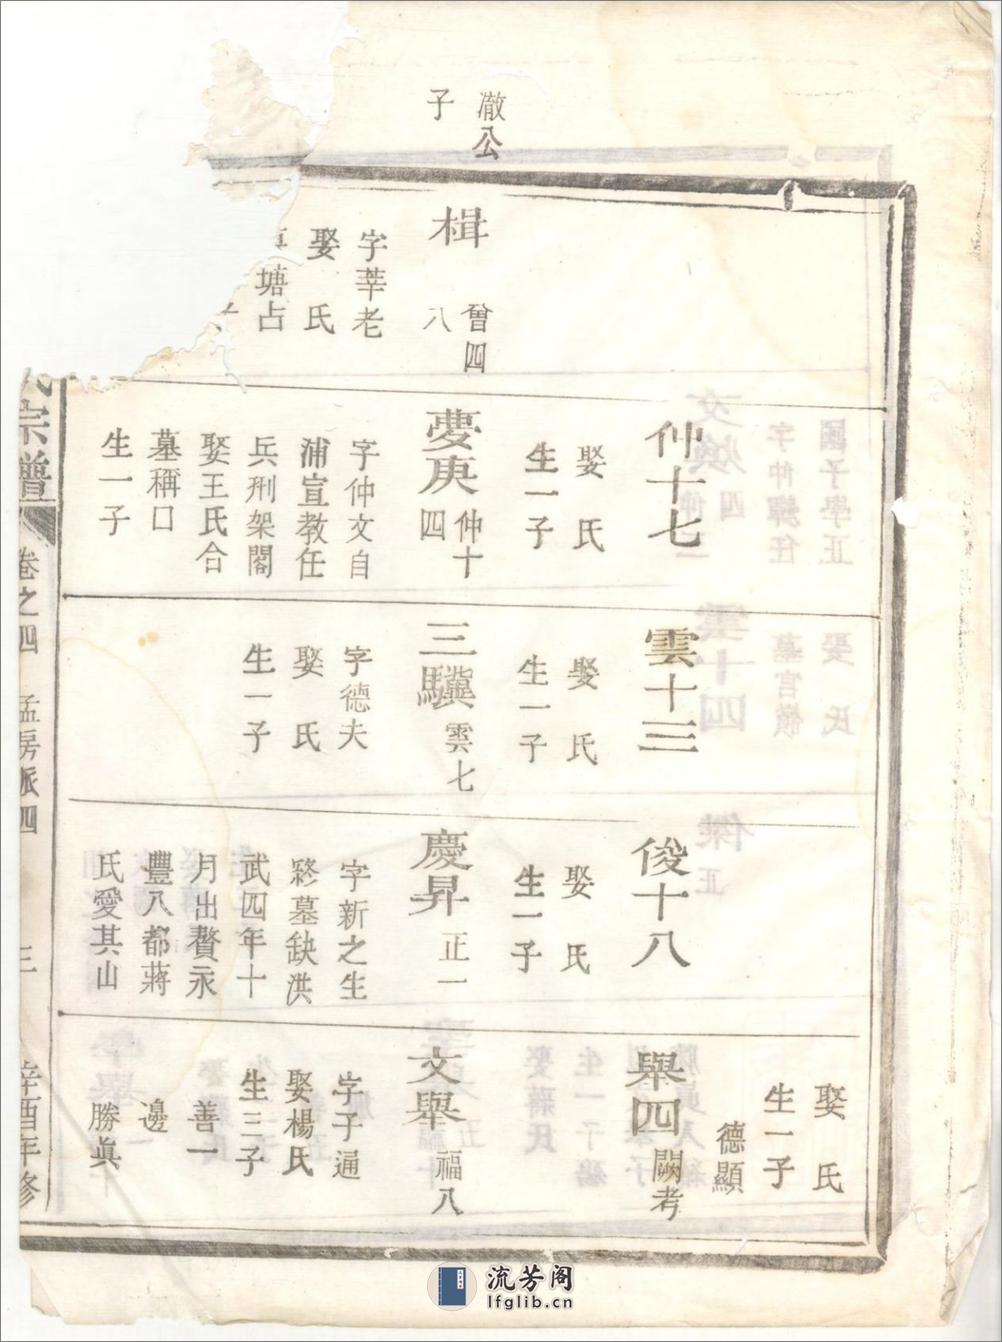 澈公
子
楫
曾四
八
字莘老
娶氏
塘占
仲十七
娶氏
生一子
夢庚
仲十
四
字仲文自
浦宣教任
兵刑架閣
娶王氏合
墓稱口
生一子
雲十三
娶氏
生一子
三驥
雲七
字德夫
娶氏
生一子
俊十八
娶氏
生一子
慶昇
正一
字新之生
終墓缺洪
武四年十
月出贅永
豐八都蔣
氏愛其山
娶氏
生一子
德顯
舉四
闕考
文舉
福八
字子通
娶楊氏
生三子
善一
邊
勝眞
氏宗譜
卷之四
孟房派四
三
辛酉年修
流芳阁
lfglib.cn